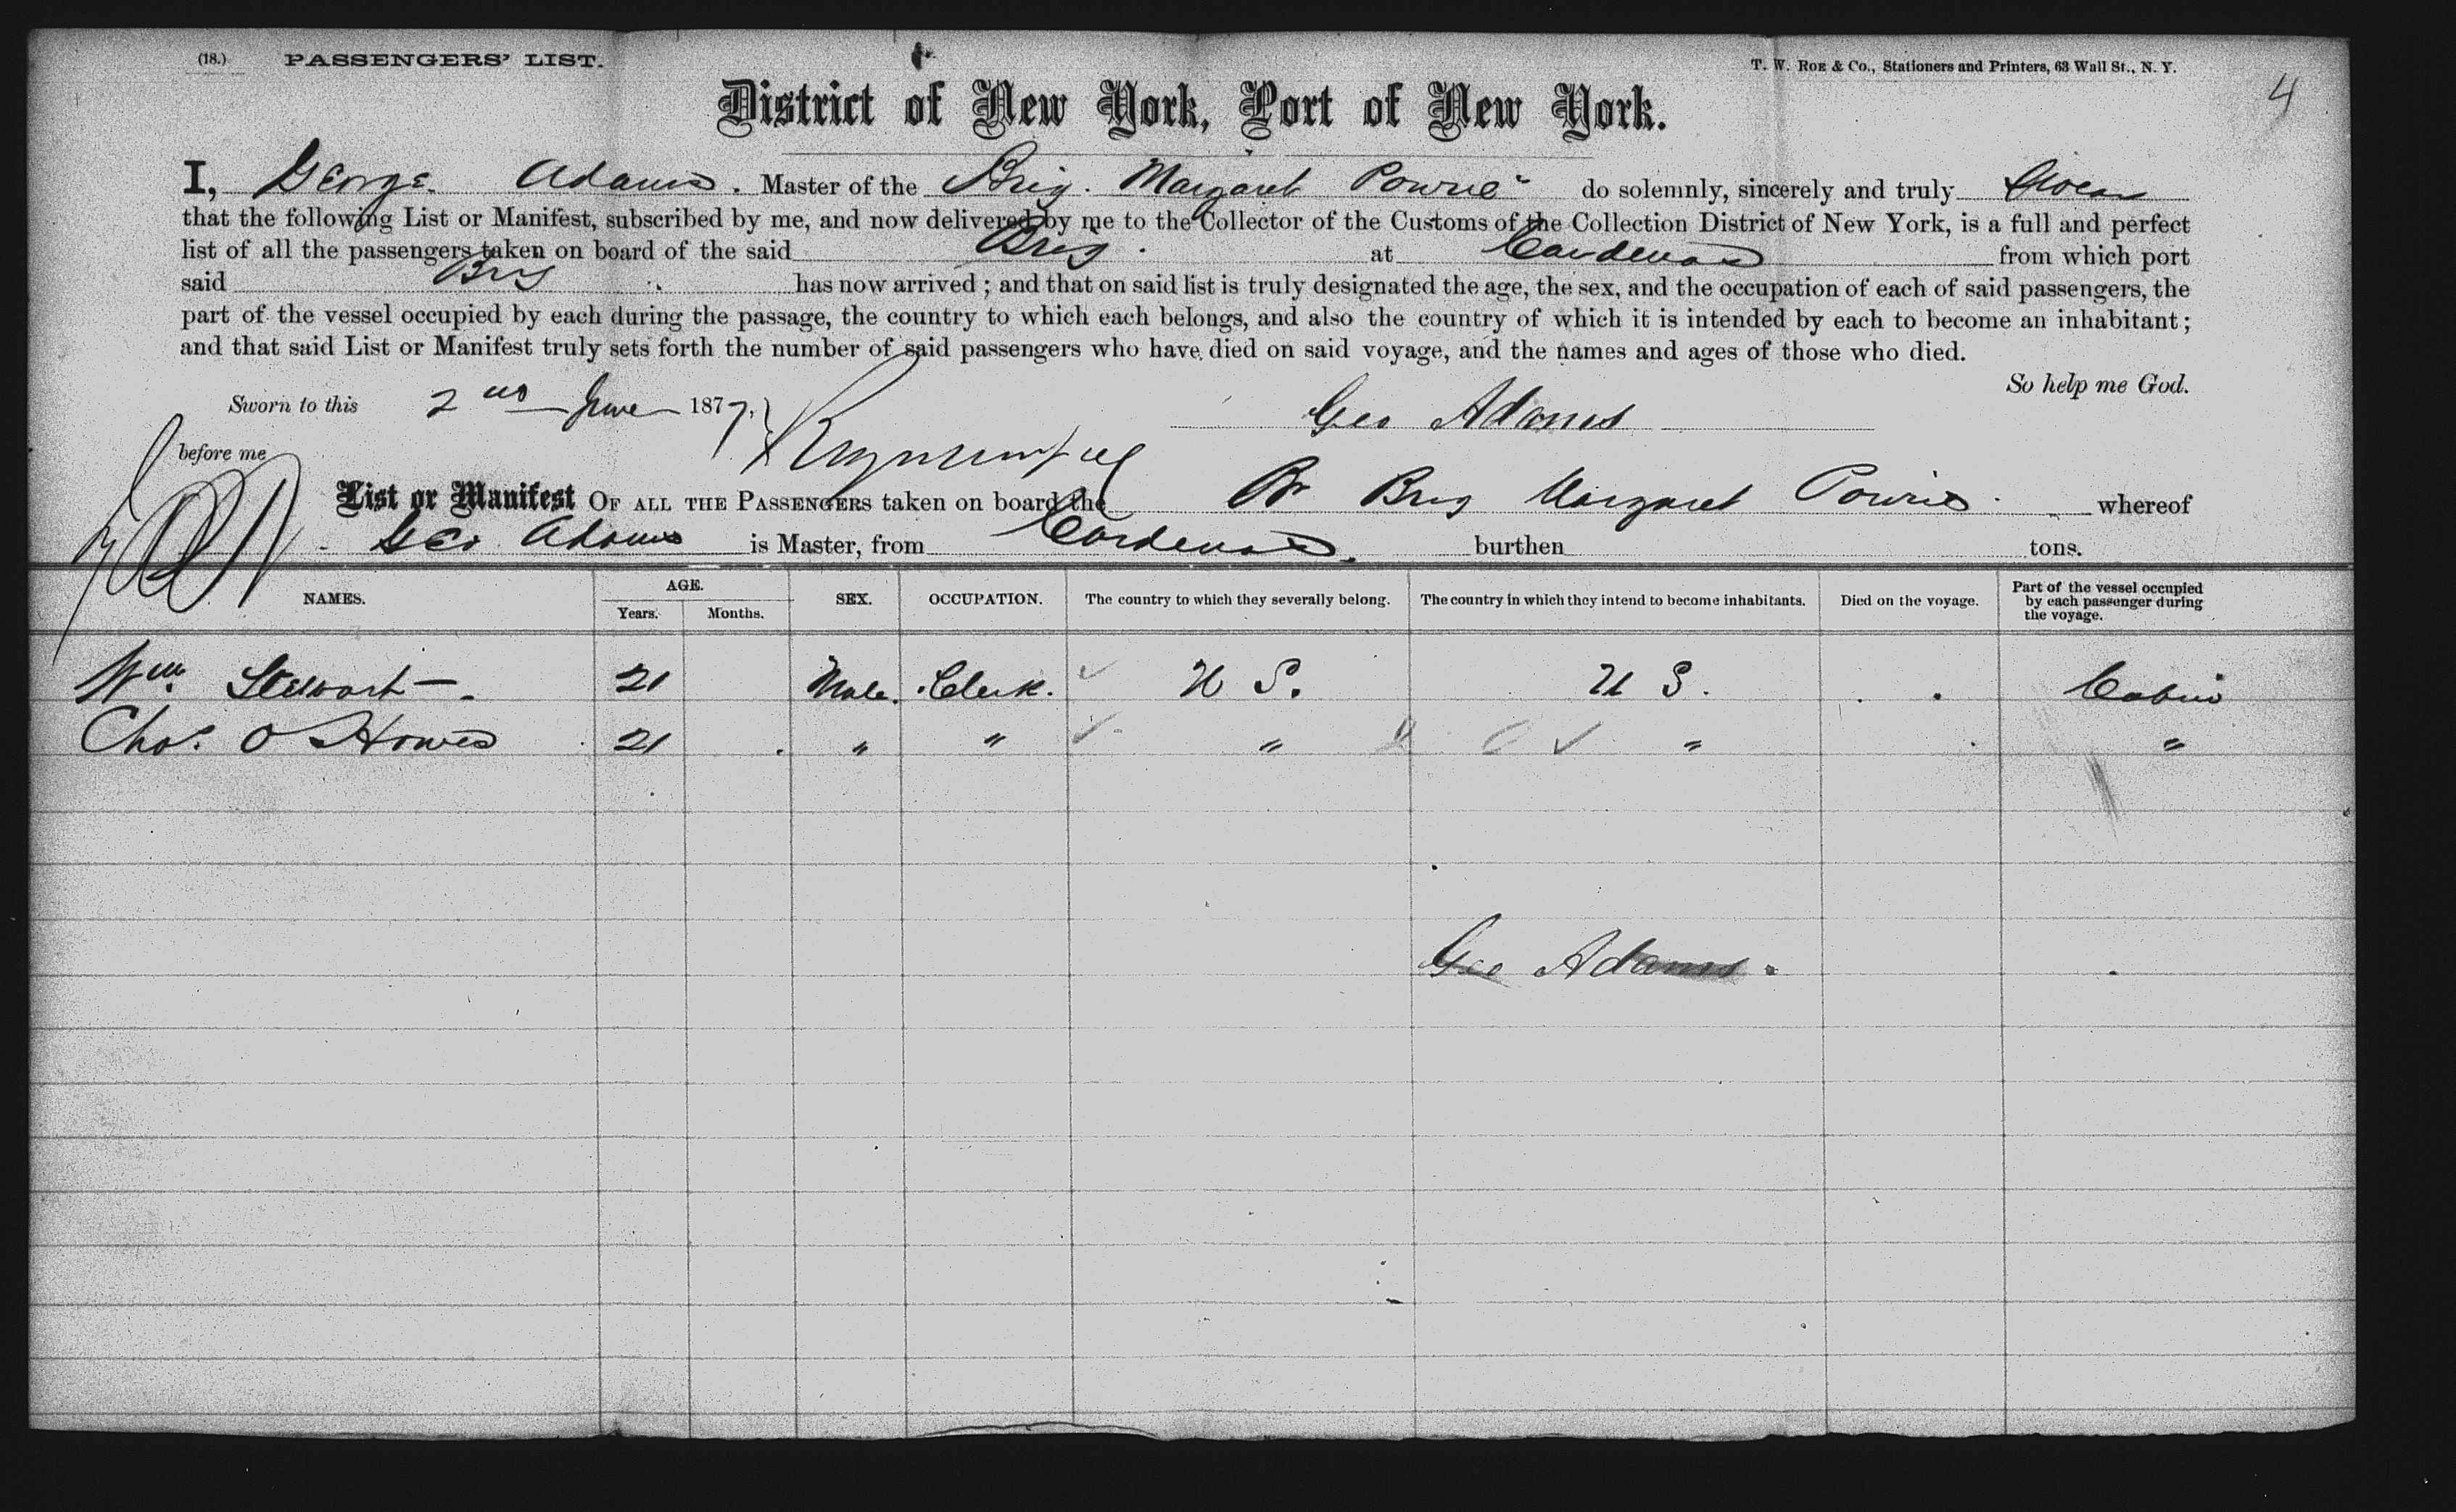 (18.) PASSENGERS' LIST.
T. W. ROE & Co., Stationers and Printers, 63 Wall St., N. Y.
4
District of New York, Port of New York.
I, George Adams. Master of the Brig. Margaret Powrie do solemnly, sincerely and truly Swear
that the following List or Manifest, subscribed by me, and now delivered by me to the Collector of the Customs of the Collection District of New York, is a full and perfect
list of all the passengers taken on board of the said Brig at Cardenas from which port
said Brig has now arrived ; and that on said list is truly designated the age, the sex, and the occupation of each of said passengers, the
part of the vessel occupied by each during the passage, the country to which each belongs, and also the country of which it is intended by each to become an inhabitant ;
and that said List or Manifest truly sets forth the number of said passengers who have died on said voyage, and the names and ages of those who died.
So help me God.
Sworn to this 2nd June 1877,
Geo Adams
before me
List or Manifest OF ALL THE PASSENGERS taken on board the Br Brig Margaret Powrie whereof
Geo Adams is Master, from Cardenas. burthen tons.
NAMES. AGE. Years. Months. SEX. OCCUPATION. The country to which they severally belong. The country in which they intend to become inhabitants. Died on the voyage. Part of the vessel occupied by each passenger during the voyage.
Wm Stewart 21 Male. Clerk. ✓ U S. U S. Cabin
Chas. O Howes 21 " " ✓ " ✓ " "
Geo Adams.